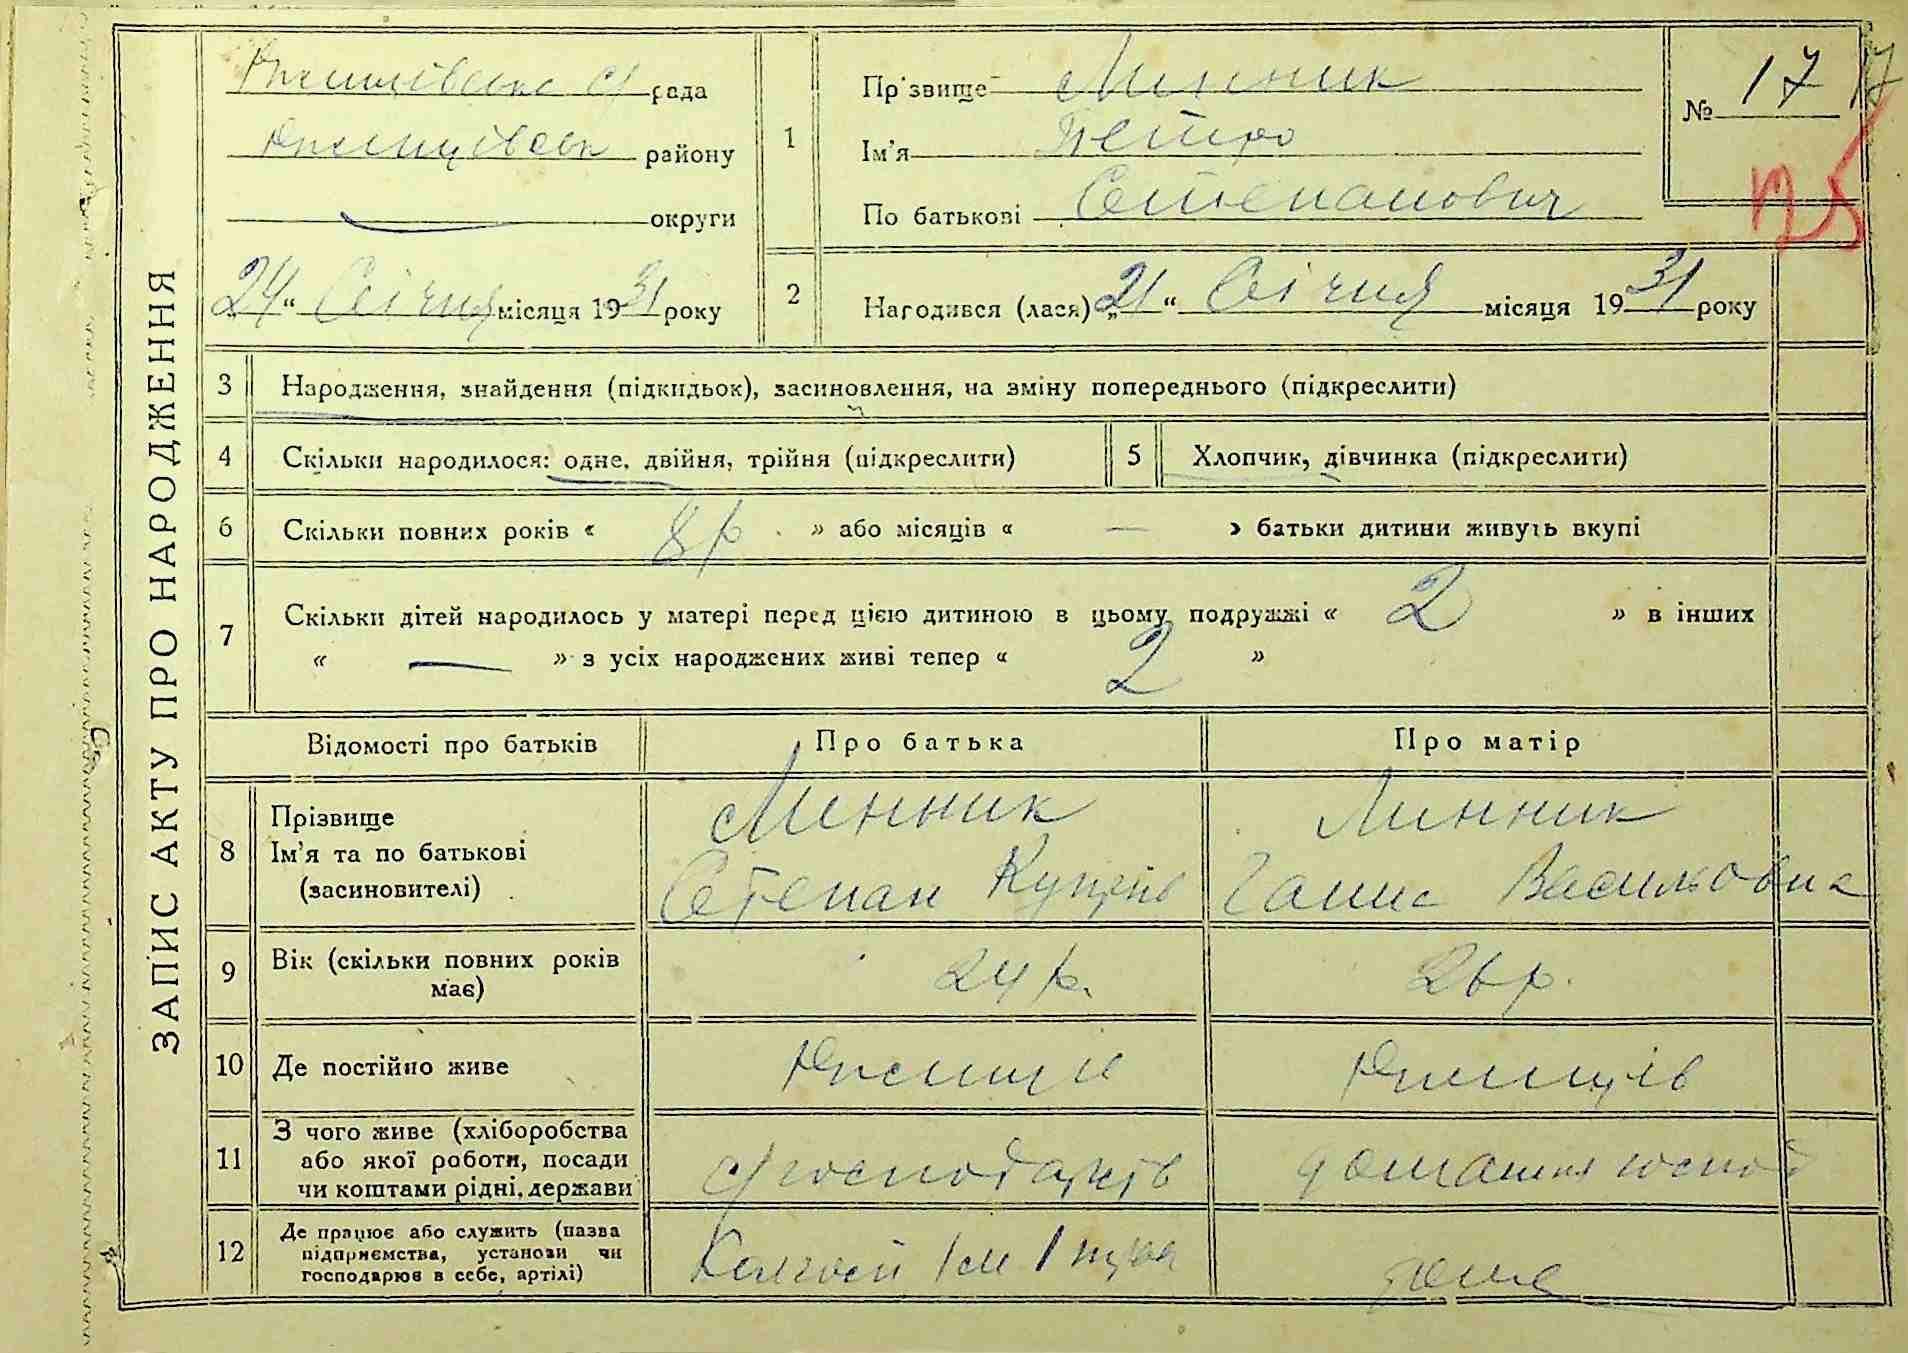 ЗАПИС АКТУ ПРО НАРОДЖЕННЯ
рада
району
округи
„24“ Січня місяця 1931 року
1
Прізвище Линник
Ім'я Петро
По батькові Степанович
№ 17
17
2
Народився (лася) „21“ Січня місяця 1931 року
3 Народження, знайдення (підкидьок), засиновлення, на зміну попереднього (підкреслити)
4 Скільки народилося: одне, двійня, трійня (підкреслити)
5 Хлопчик, дівчинка (підкреслити)
6 Скільки повних років « 8 р. » або місяців « — » батьки дитини живуть вкупі
7 Скільки дітей народилось у матері перед цією дитиною в цьому подружжі « 2 » в інших
« — » з усіх народжених живі тепер « 2 »
Відомості про батьків
Про батька
Про матір
8 Прізвище
Ім'я та по батькові
(засиновителі)
Линник
Степан
Линник
Ганна Васильовна
9 Вік (скільки повних років
має)
24 р.
26 р.
10 Де постійно живе
11 З чого живе (хліборобства
або якої роботи, посади
чи коштами рідні, держави
домашня господ
12 Де працює або служить (назва
підприємства, установи чи
господарює в себе, артілі)
дома